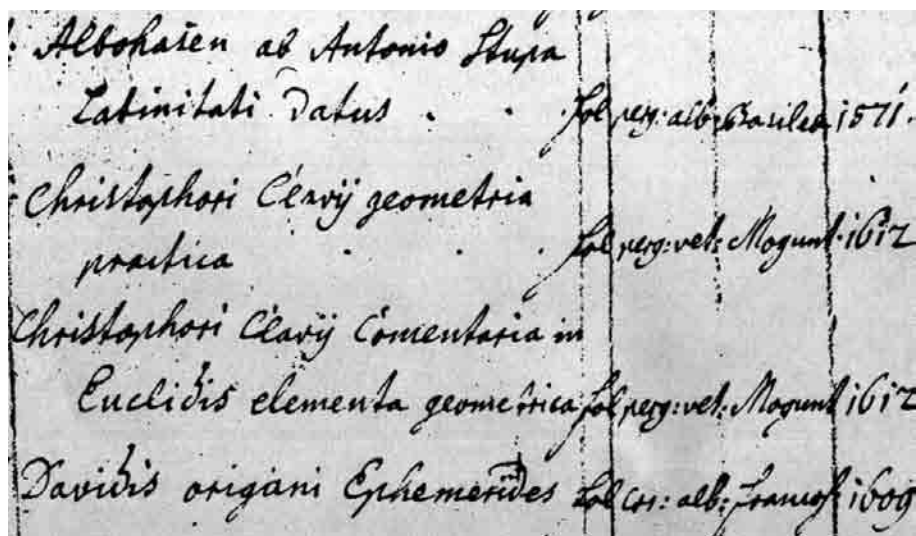 Albohasen ab Antonio Stupa
Latinitati Datus . . . fol perg: alb: Basilea 1571.
Christophori Clavij geometria
practica . . . fol perg: vet: Mogunt. 1612
Christophori Clavij Comentaria in
Euclidis elementa geometrica fol perg: vet: Mogunt 1612
Davidis origani Ephemerides fol cor: alb: francof: 1609